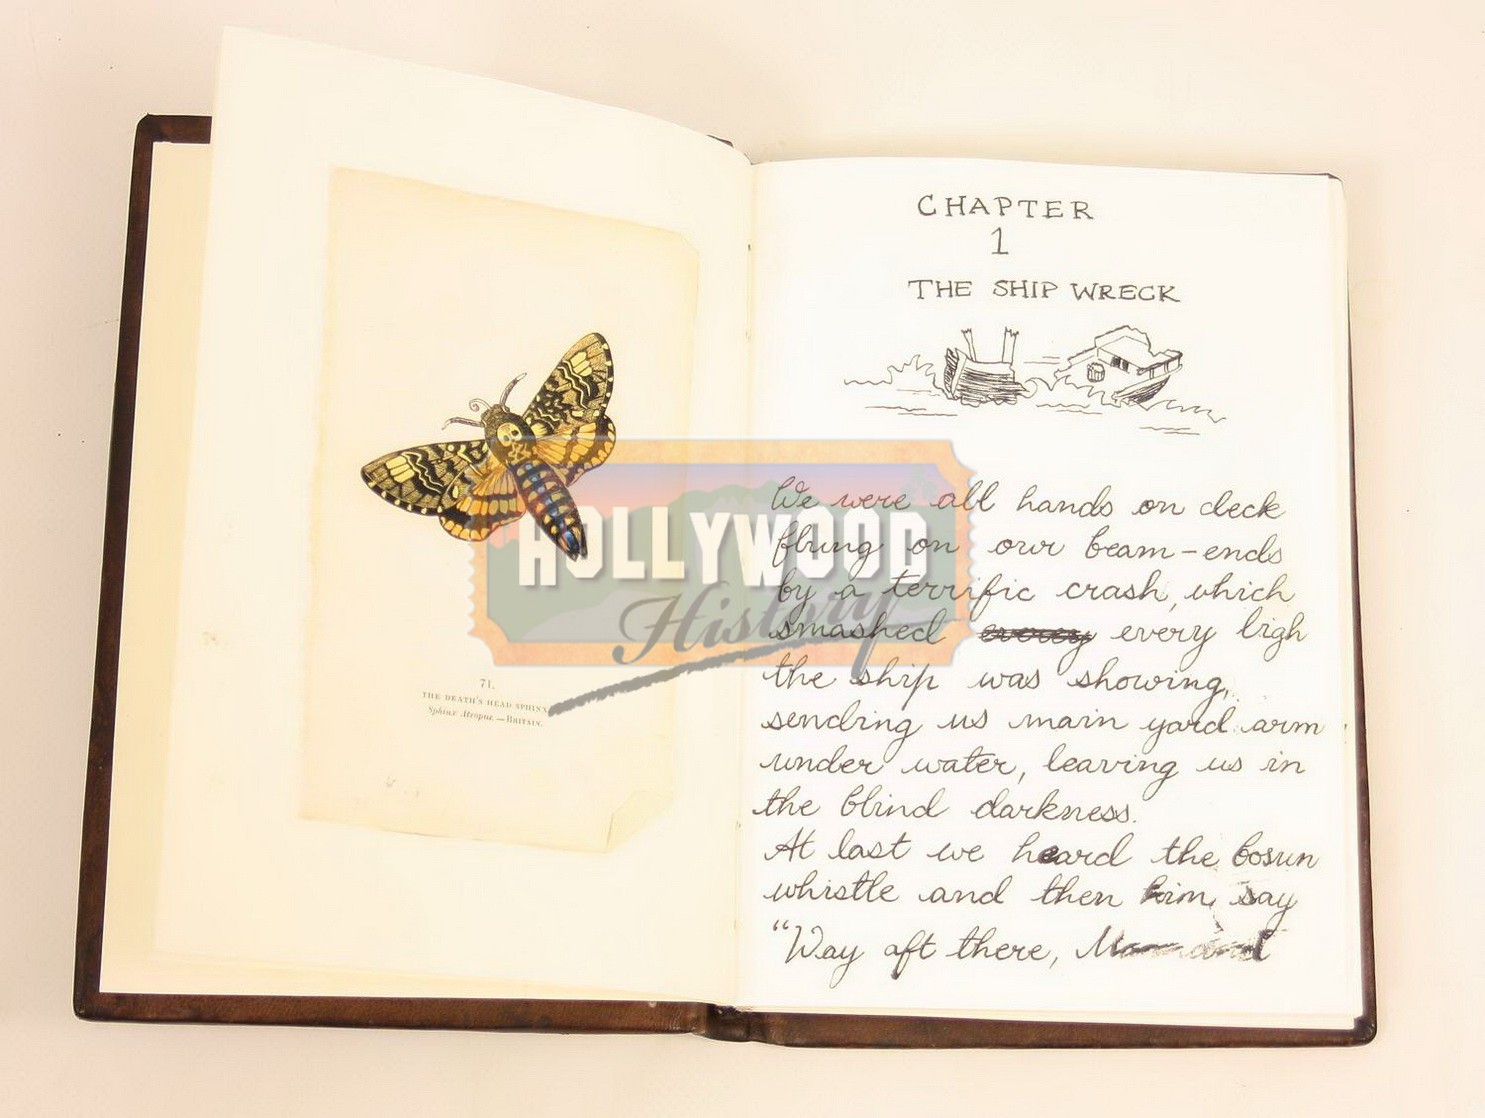 71.
THE DEATH'S HEAD SPHINX
Sphinx Atropos.—BRITAIN.
HOLLYWOOD
History
CHAPTER
1
THE SHIP WRECK
We were all hands on deck
flung on our beam-ends
by a terrific crash, which
smashed every ligh
the ship was showing,
sending us main yard arm
under water, leaving us in
the blind darkness.
At last we heard the bosun
whistle and then him say
"Way aft there,